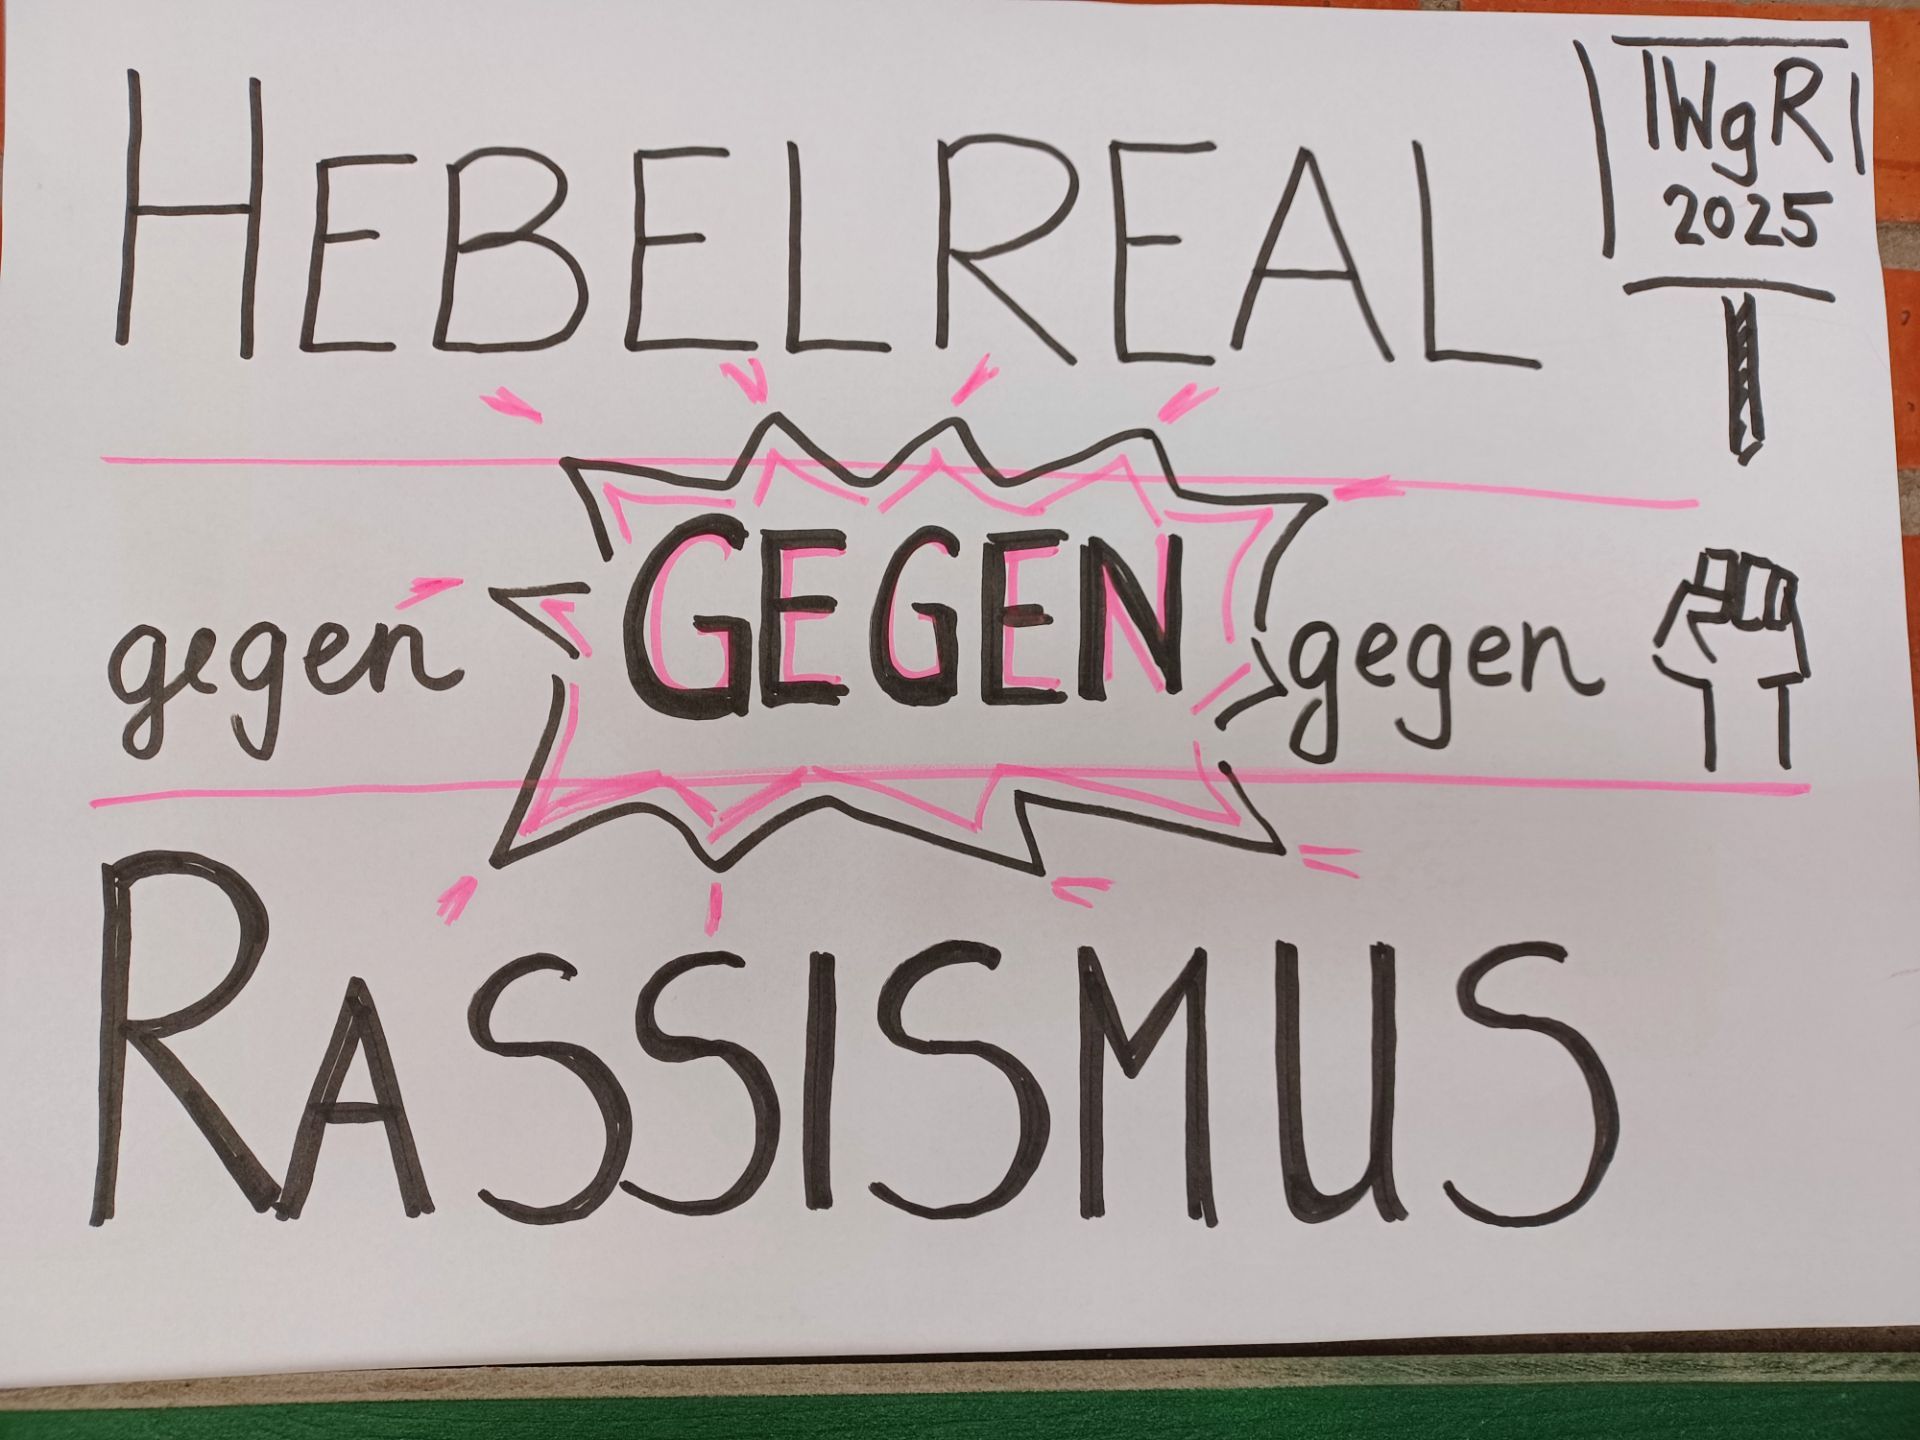 HEBELREAL
IWgR
2025
gegen GEGEN gegen
RASSISMUS